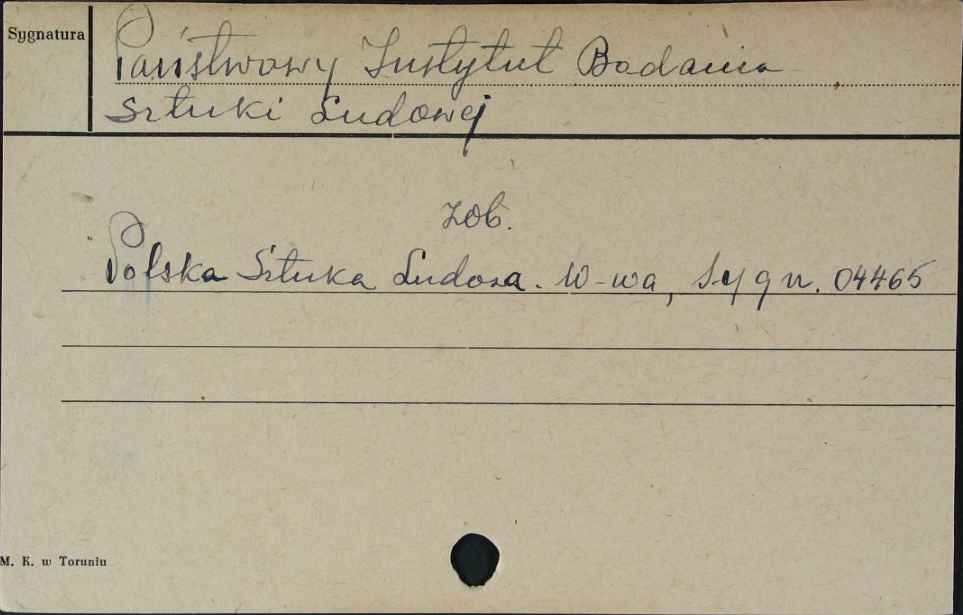 Sygnatura
Państwowy Instytut Badania
Sztuki Ludowej
zob.
Polska Sztuka Ludowa. W-wa, Sygn. 04465
M. K. w Toruniu